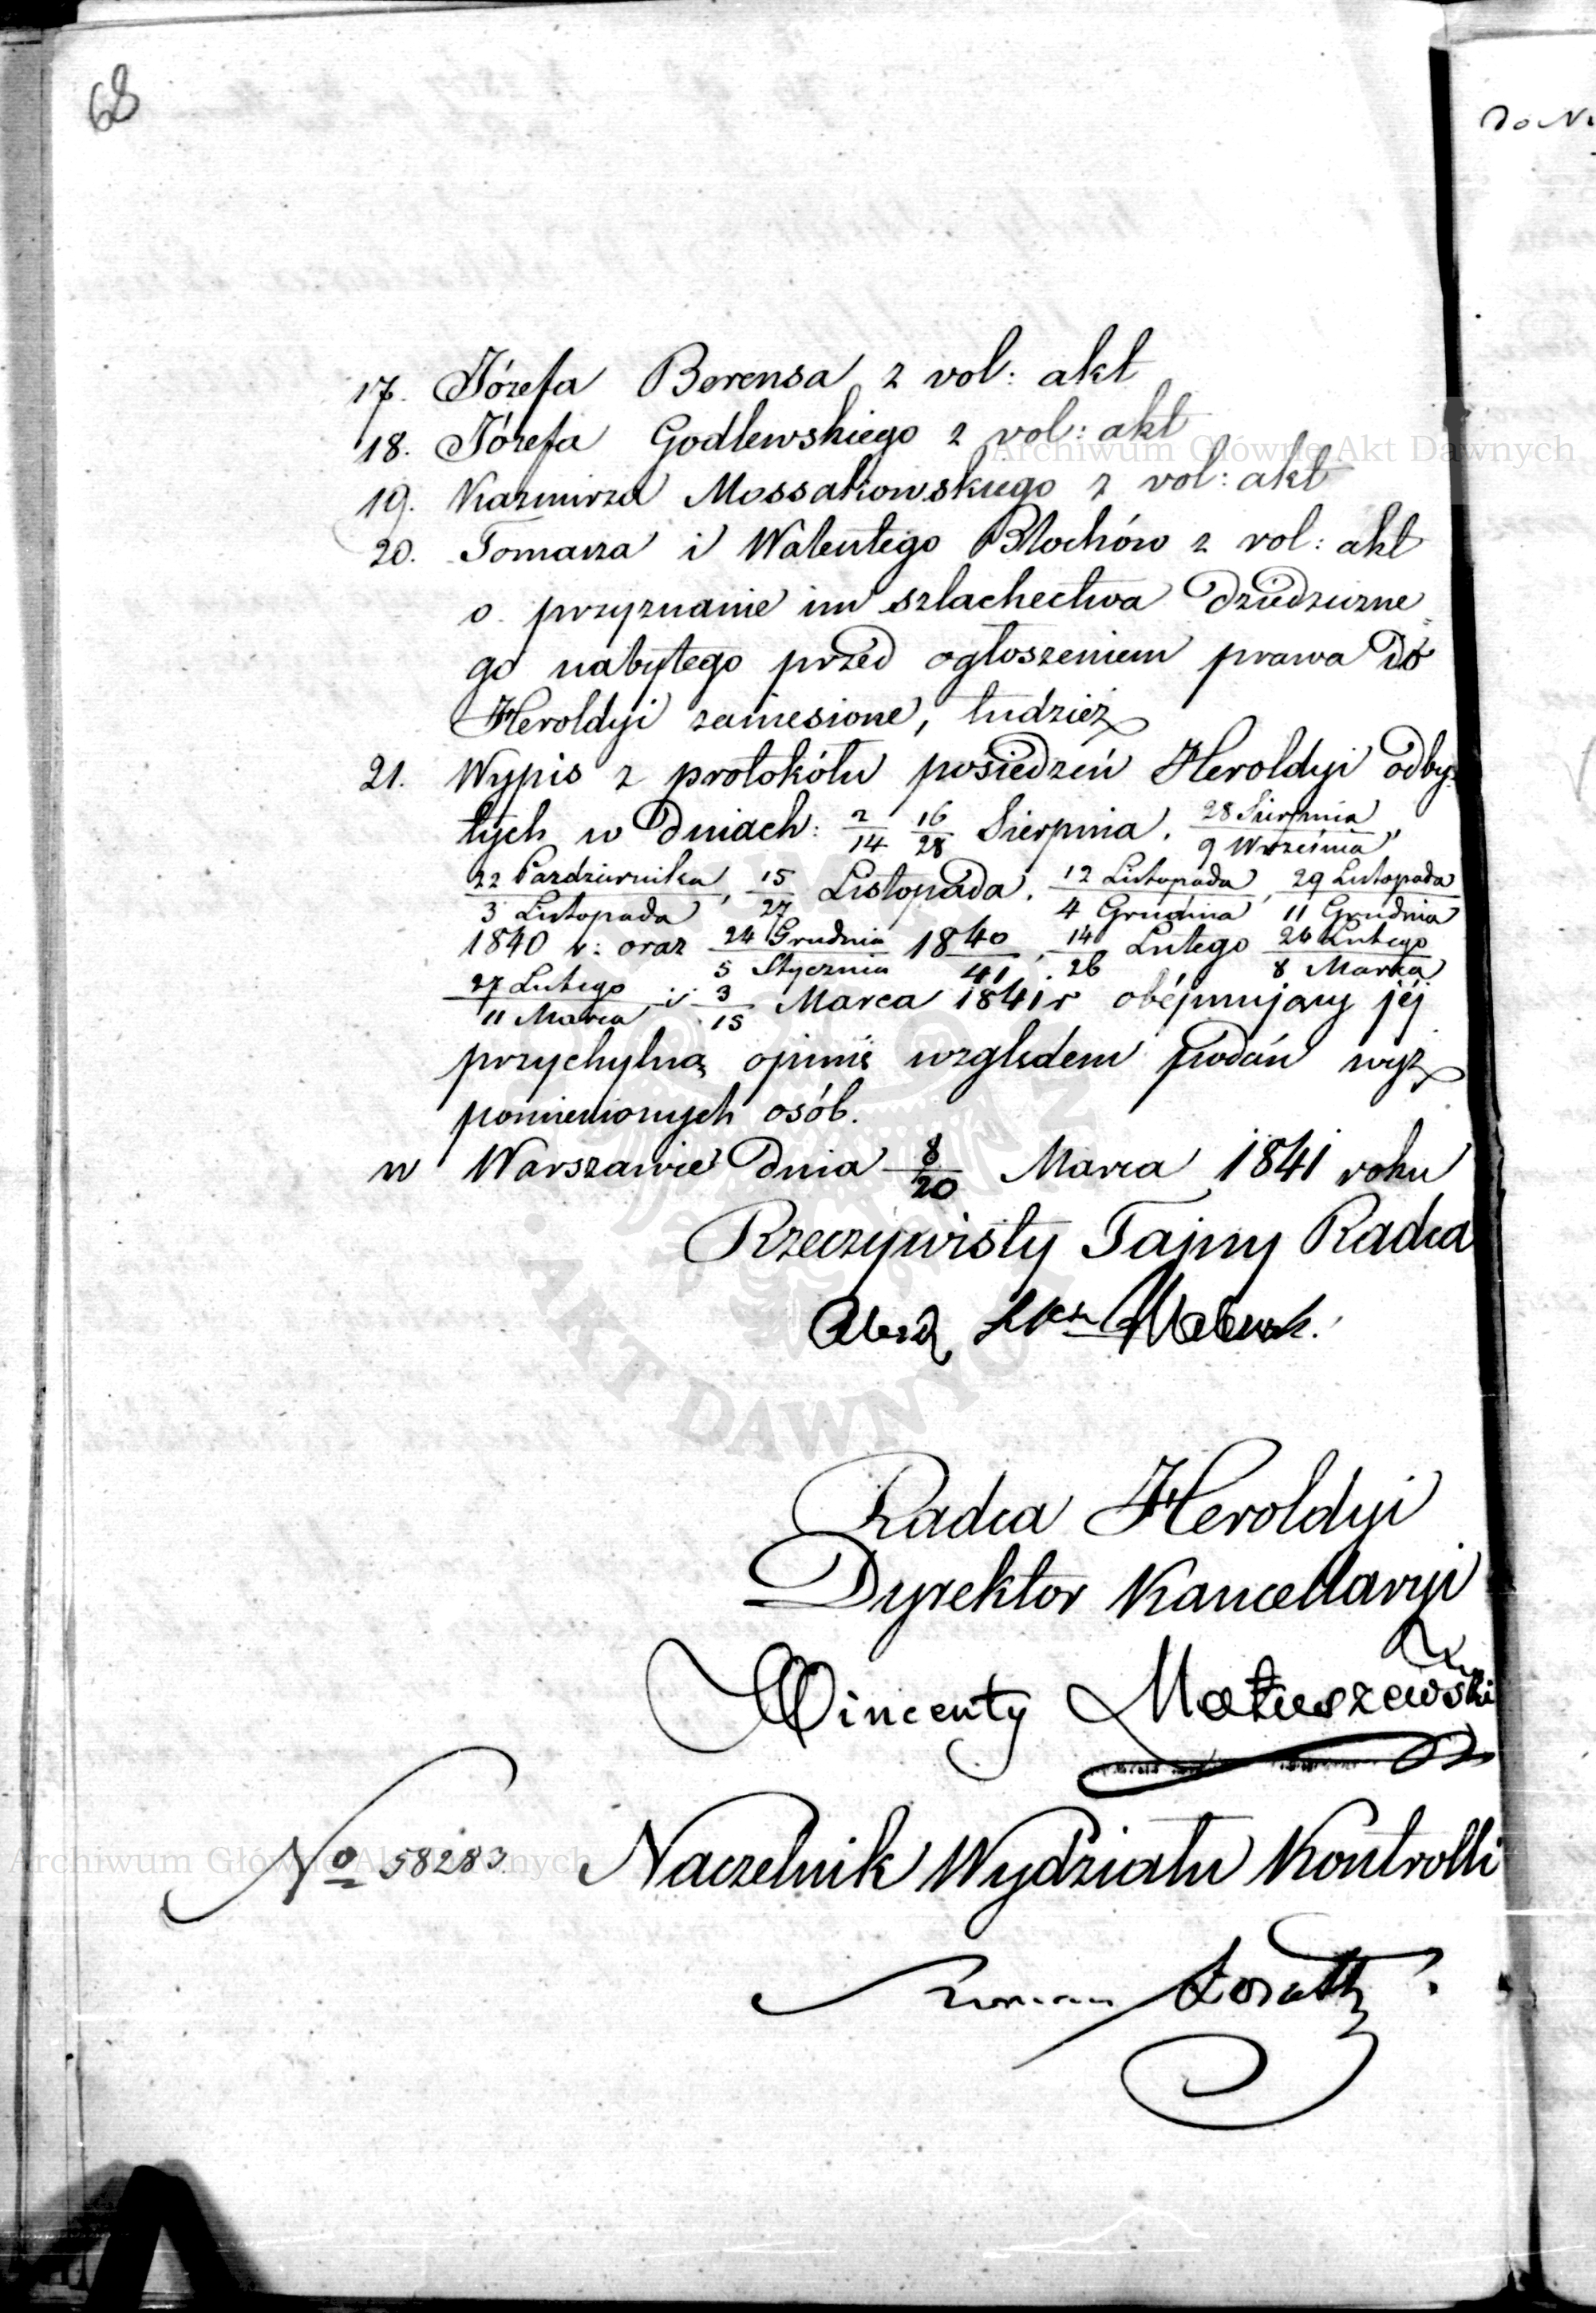 68
Do N
17. Józefa Berensa z vol: akt
18. Józefa Godlewskiego z vol: akt
Archiwum Główne Akt Dawnych
19. Kazmirza Mossakowskiego z vol: akt
20. Tomasza i Walentego Blochów z vol: akt
o przyznanie im szlachectwa dziedziczne
go nabytego przed ogłoszeniem prawa do
Heroldyi zaniesione, tudzież
21. Wypis z protokółu posiedzeń Heroldyi odby
tych w dniach: 2/14 16/28 Sierpnia, 28 Sierpnia/9 Września,
22 Pazdziernika/3 Listopada, 15/27 Listopada, 12 Listopada/4 Grudnia, 29 Listopada/11 Grudnia
1840 r: oraz 24 Grudnia/5 Stycznia 1840/41, 14/26 Lutego 24 Lutego/8 Marca
27 Lutego/11 Marca i 3/15 Marca 1841 r obéjmujący jéj
przychylną opinię względem podań wyż
pomienionych osób.
w Warszawie dnia 8/20 Marca 1841 roku
Rzeczywisty Tajny Radca
AKT DAWNYCH
Radca Heroldyi
Dyrektor Kancellaryi
Wincenty Matuszewski
No 58283 Naczelnik Wydziału Kontrolli
Archiwum Główne Akt Dawnych